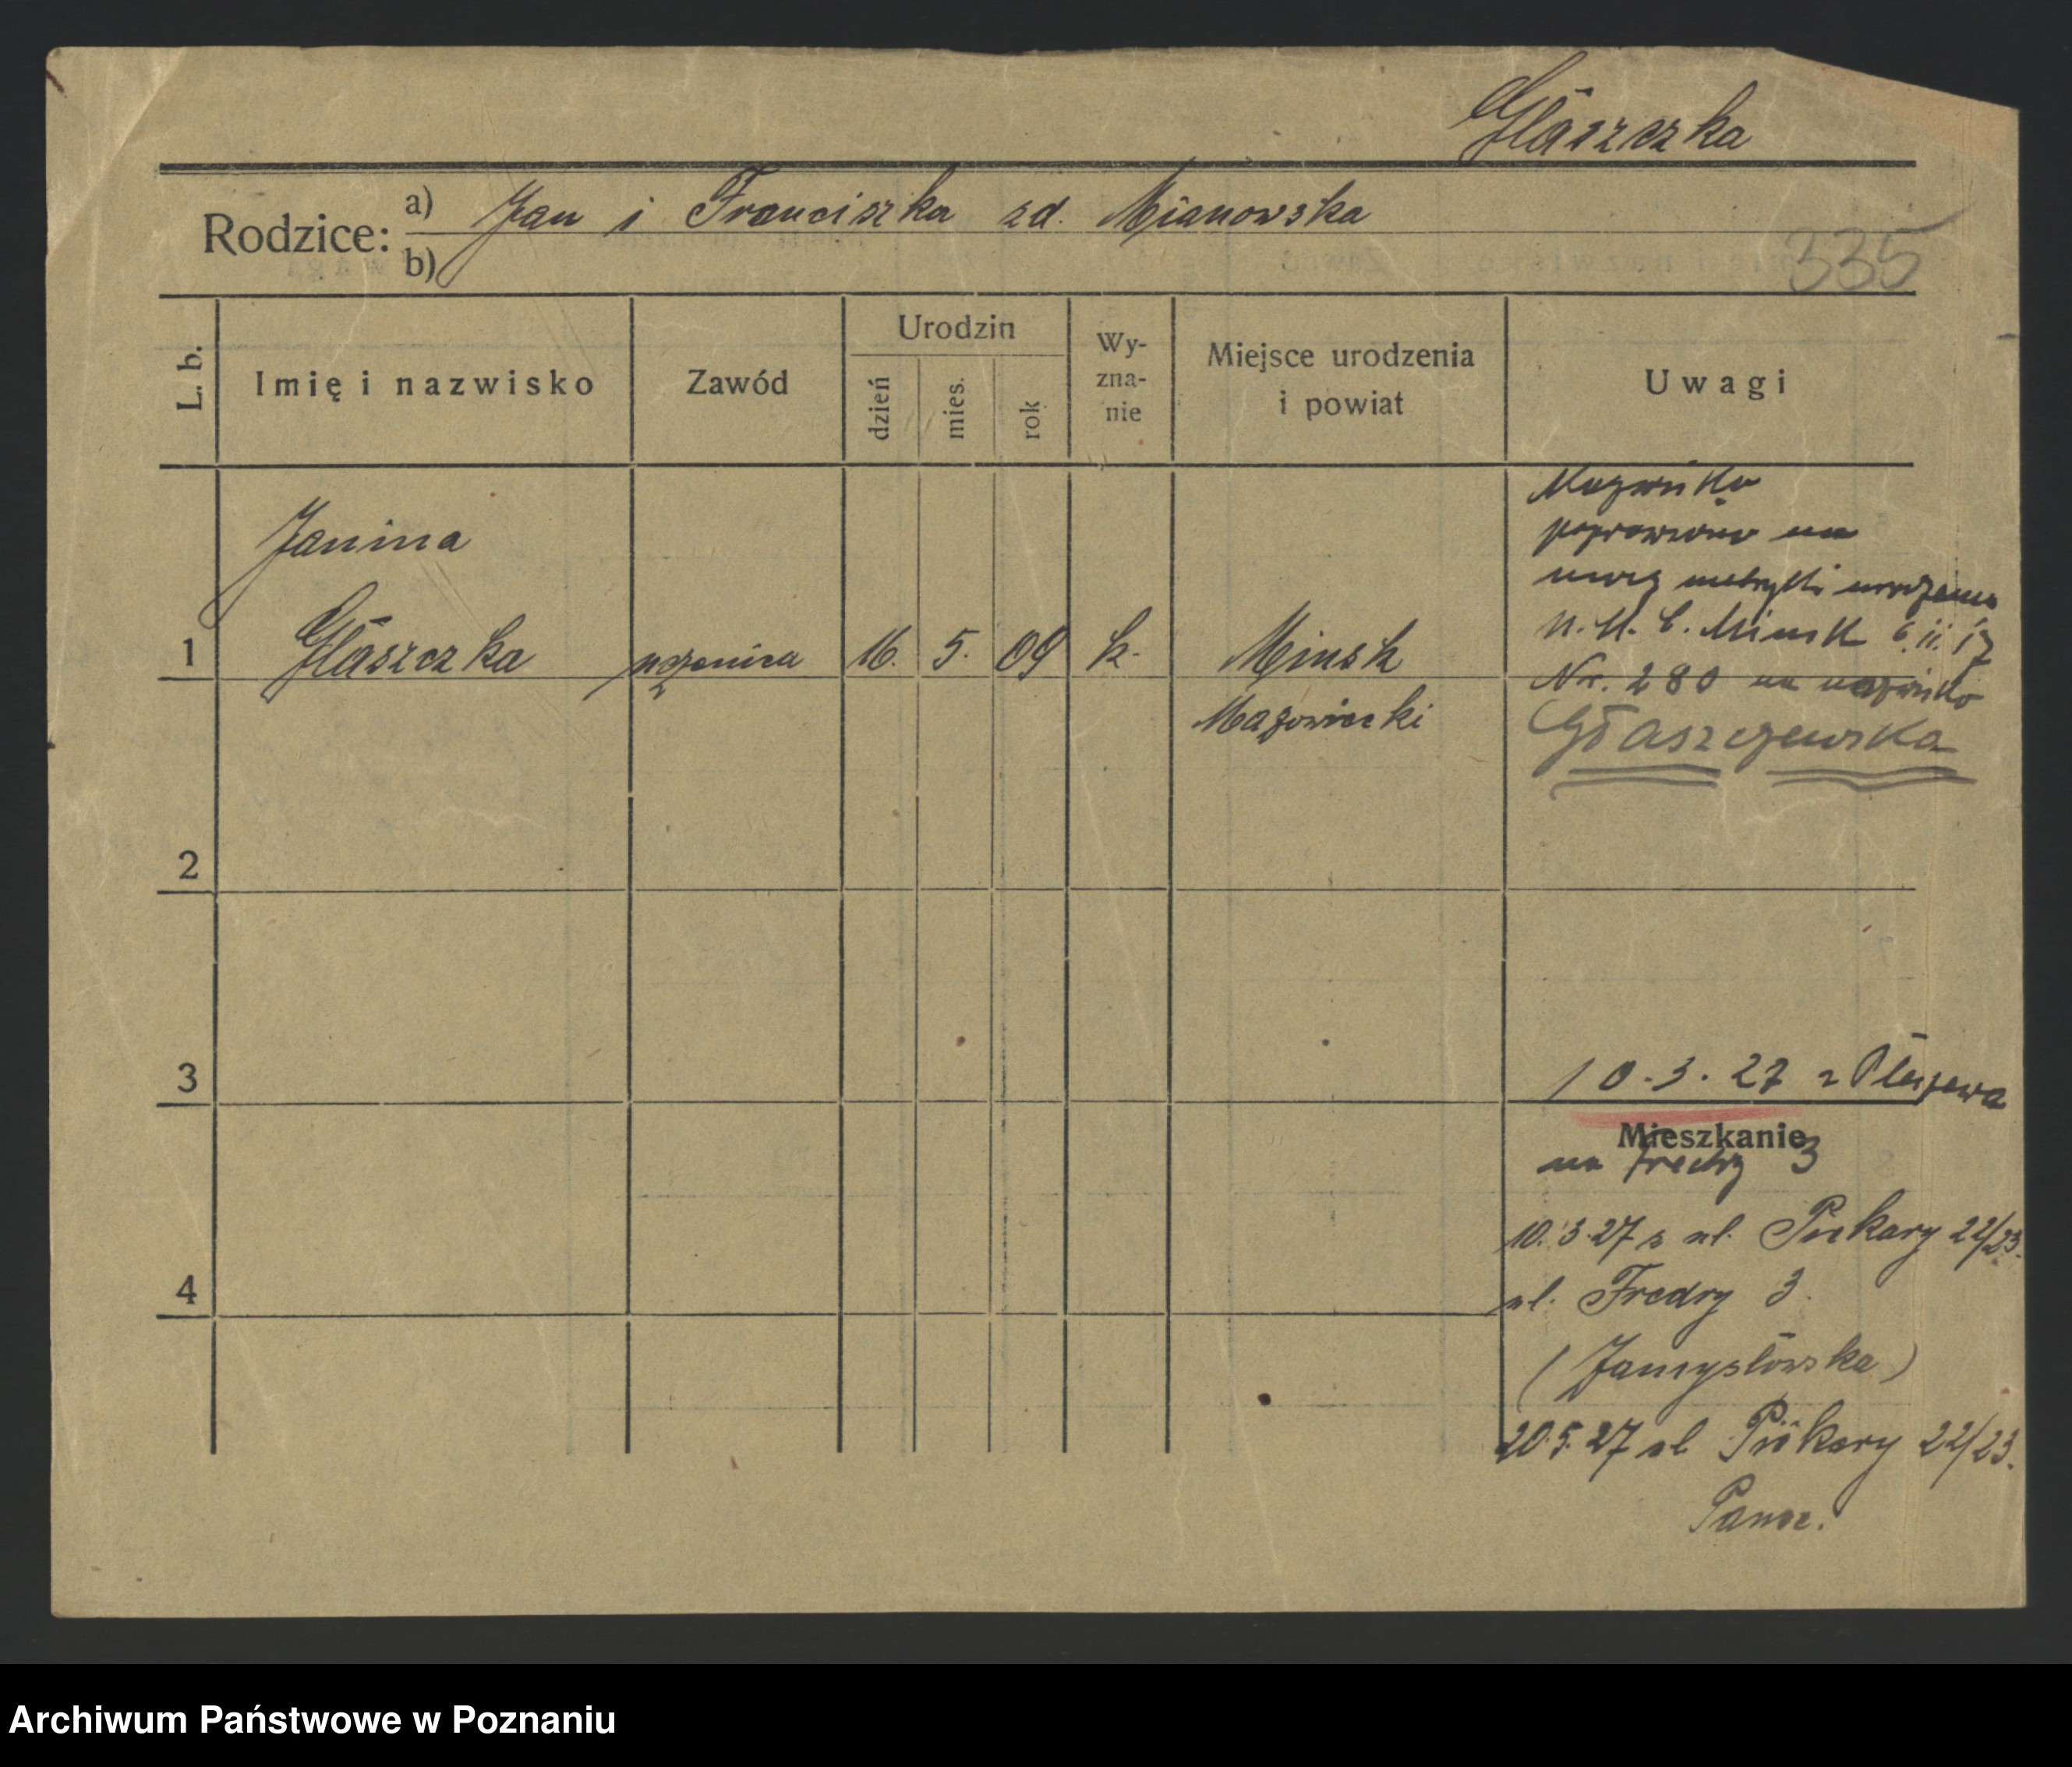 Głaszczka
Rodzice: a) Jan i Franciszka zd. Mianowska
b)
335
L. b.
Imię i nazwisko
Zawód
Urodzin
dzień
mies.
rok
Wy-
zna-
nie
Miejsce urodzenia
i powiat
Uwagi
Janina
1 Głaszczka uczenica 16. 5. 09 k. Minsk
Mazowiecki
Nazwisko
poprawiono na
mocy metryki urodzenia
Minsk 6.11.17
Nr. 280 na nazwisko
Głaszczewska
2
3
10.3.27 z
Mieszkanie
na Fredry 3
10.3.27 z ul. Piekary 22/23.
ul. Fredry 3.
4
(Zamysłowska)
20.5.27 ul Piekary 22/23.
Archiwum Państwowe w Poznaniu